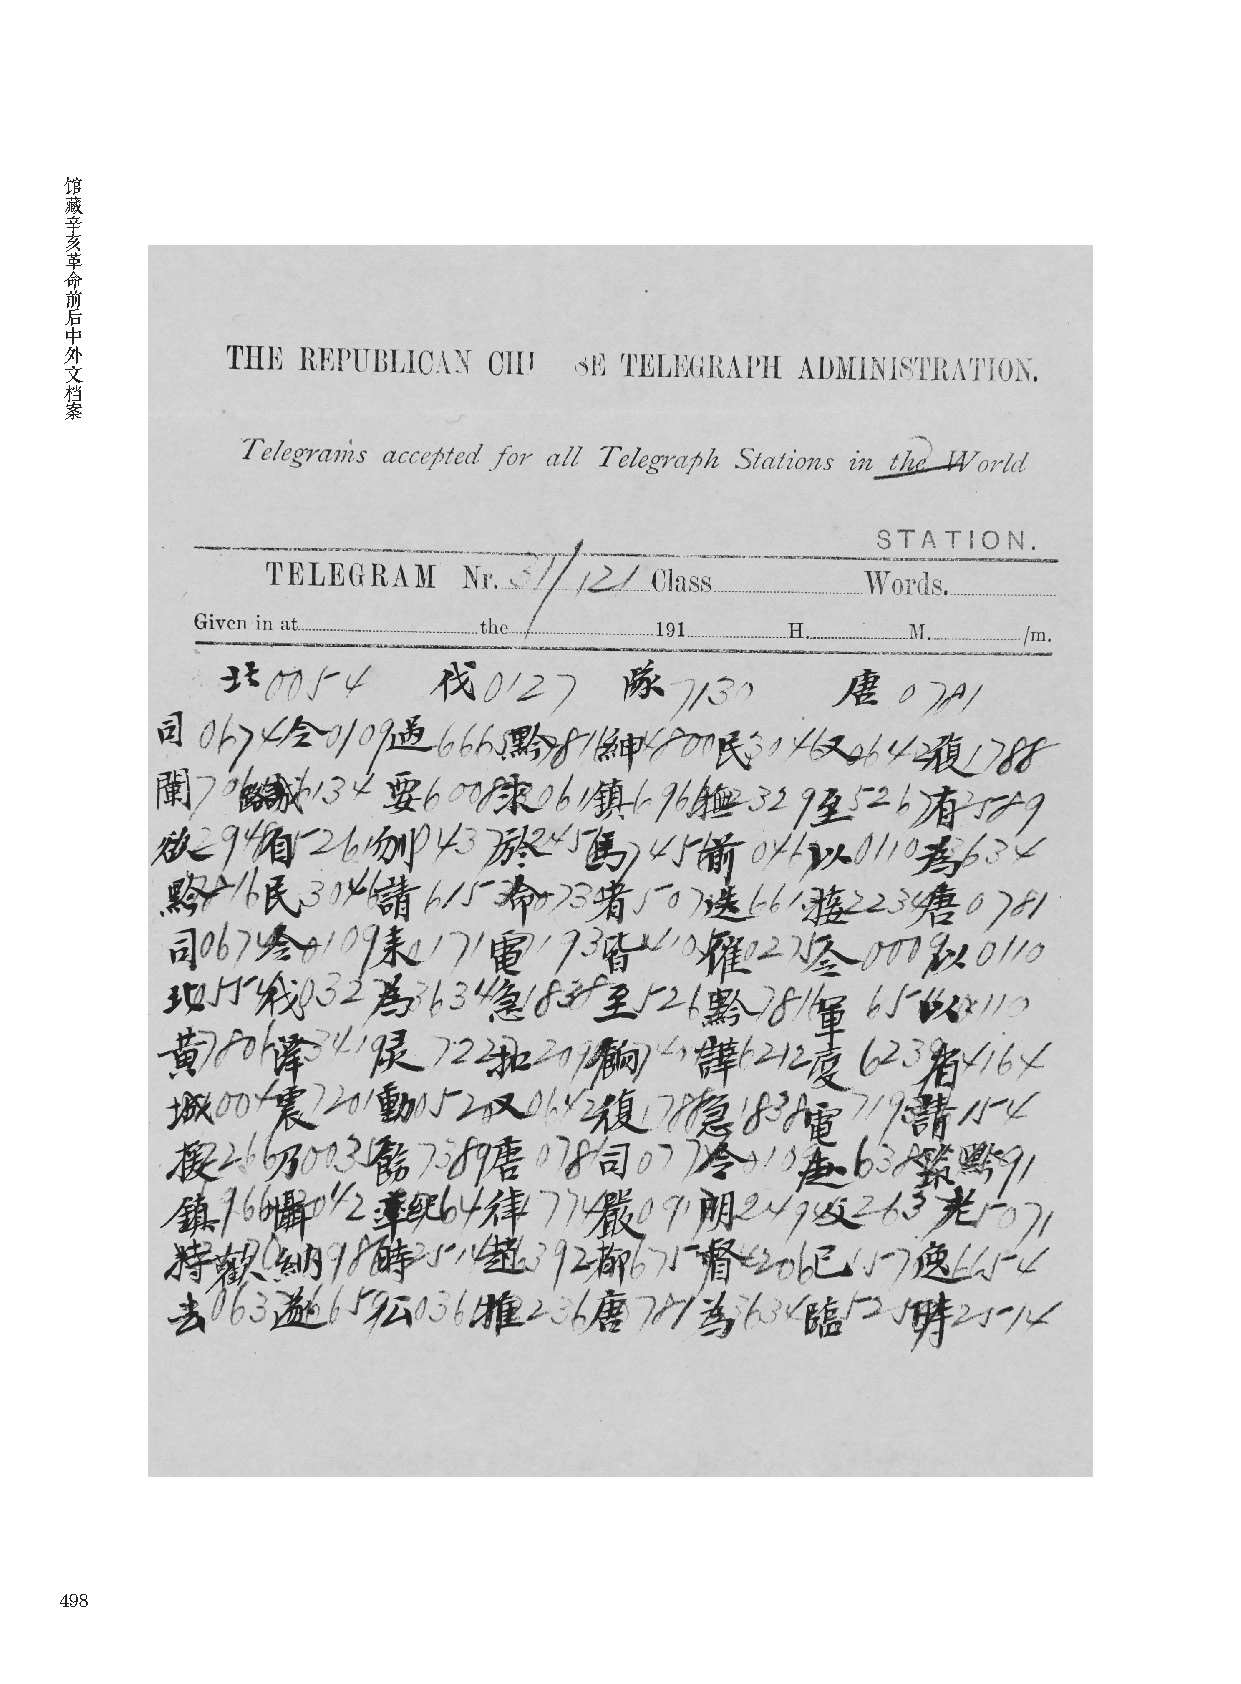 馆藏辛亥革命前后中外文档案
THE REPUBLICAN CHI SE TELEGRAPH ADMINISTRATION.
Telegrams accepted for all Telegraph Stations in the World
STATION.
TELEGRAM Nr. 31/121 Class Words.
Given in at the 191 H. M. /m.
北0054 伐0127 隊7130 唐0781
司0674令0109過666黔7816紳4800民3046又0642復1788
闔70 誠6134要6008求061鎮6966撫2329至5267有2589
欲2948自5261 0437於2456馬7456前0467以0110為3634
黔7816民3046請6153命073者507迭661接2234唐0781
司0674令0109来0171電7193皆410催0275令0009以0110
北0554伐032為3634急1838至526黔7816軍65以0110
黃7806澤3419 722扣209餉74譁6212 623省4164
城004震7201動0520又0642復1788急1838電7193請154
援266乃0035飭7389唐0781司077令010 638 黔91
鎮966懾3042 紀64律1774嚴091明2494父263老5071
特 歡 納98時2514趙6392都675督4206已157 6654
去0637遜6659公0361推236唐781為3634臨525時2514
498